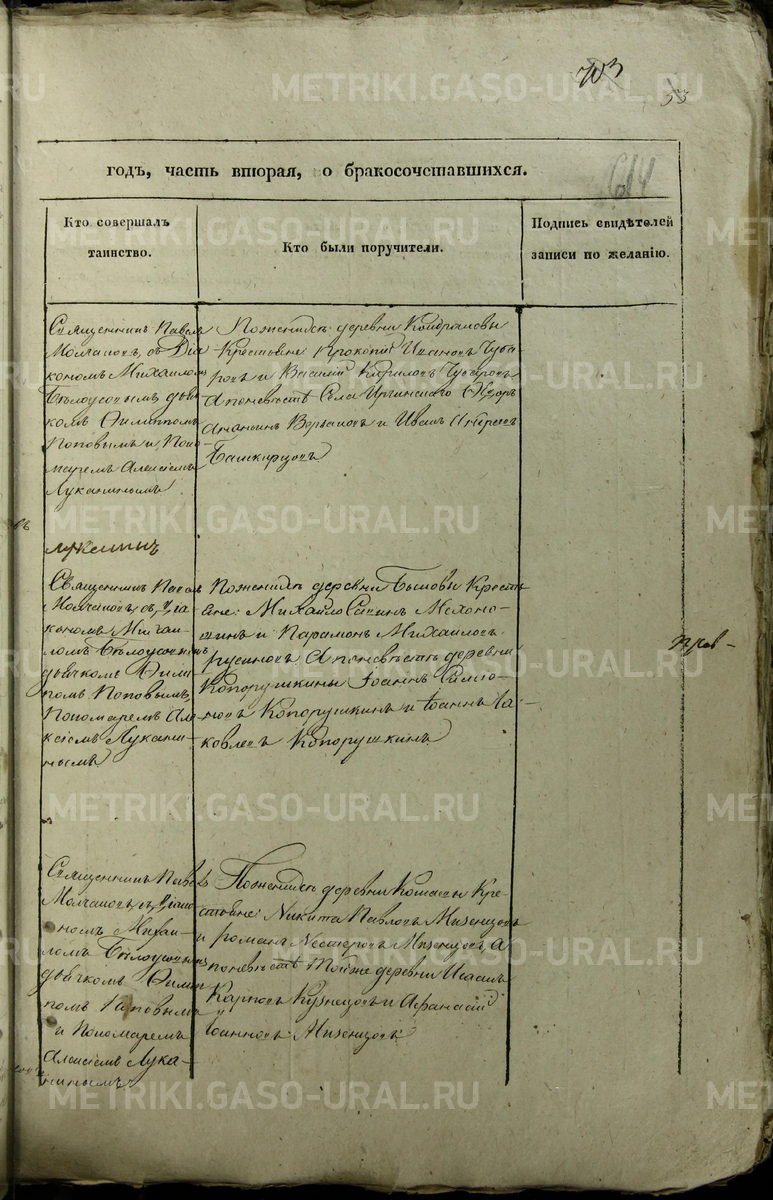 703
53
614
годъ, часть вторая, о бракосочетавшихся.
Кто совершалъ
таинство.
Кто были поручители.
Подпись свидѣтелей
записи по желанію.
Священникъ Павелъ
Молчановъ, съ Діа
кономъ Михаиломъ
Бѣлоусовымъ дья
комъ Филиппомъ
Поповымъ и Поно
маремъ Алексіемъ
Луканинымъ
По женихѣ деревни
Крестьяне Прокопій Ивановъ
и Василій Кириловъ
а по невѣстѣ Села Иргинскаго
и Иванъ
Башкирцовъ
Священникъ Павелъ
Молчановъ, съ Діа
кономъ Михаи
ломъ Бѣлоусовымъ
дьячкомъ Фили
помъ Поповымъ
Пономаремъ Але
ксіемъ Лукани
нымъ
По женихѣ деревни Бымовы Кресть
яне: Михайло Савинъ Мехоно
шинъ и Парамонъ Михаиловъ
Русиновъ а по невѣстѣ деревни
Копорушкины Іоаннъ Симео
новъ Копорушкинъ и Іоаннъ Іа
ковлевъ Копорушкинъ
Священникъ Павелъ
Молчановъ съ Діако
номъ Михаи
ломъ Бѣлоусовымъ
дьячкомъ Филип
помъ Поповымъ
и Пономаремъ
Алексіемъ Лука
нинымъ
По женихѣ деревни Кре
стьяне: Никита Павловъ Мизенцовъ
и Романъ Нестеровъ Мизенцовъ, а
по невѣстѣ тойже деревни
Карповъ Кузнецовъ и Афанасій
Іоанновъ Мизенцовъ
METRIKI.GASO-URAL.RU